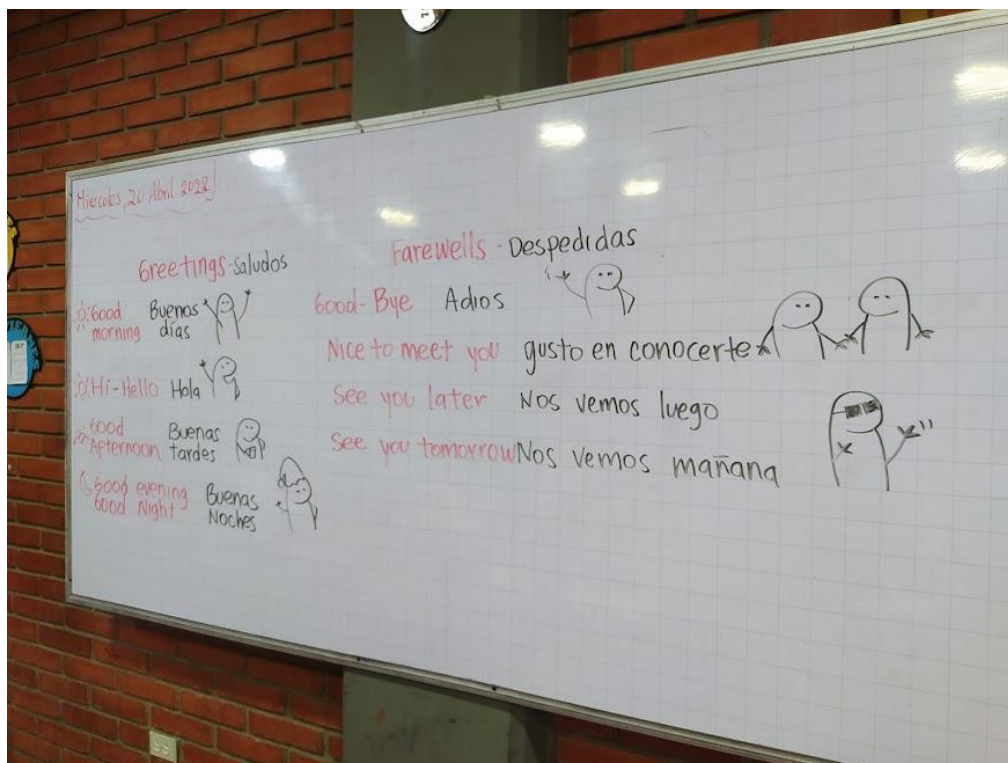 Miercoles, 20 Abril 2022
Greetings - Saludos
Good morning Buenos días
Hi - Hello Hola
Good Afternoon Buenas tardes
Good evening Good Night Buenas Noches
Farewells - Despedidas
Good - Bye Adios
Nice to meet you gusto en conocerte
See you later Nos vemos luego
See you tomorrow Nos vemos mañana